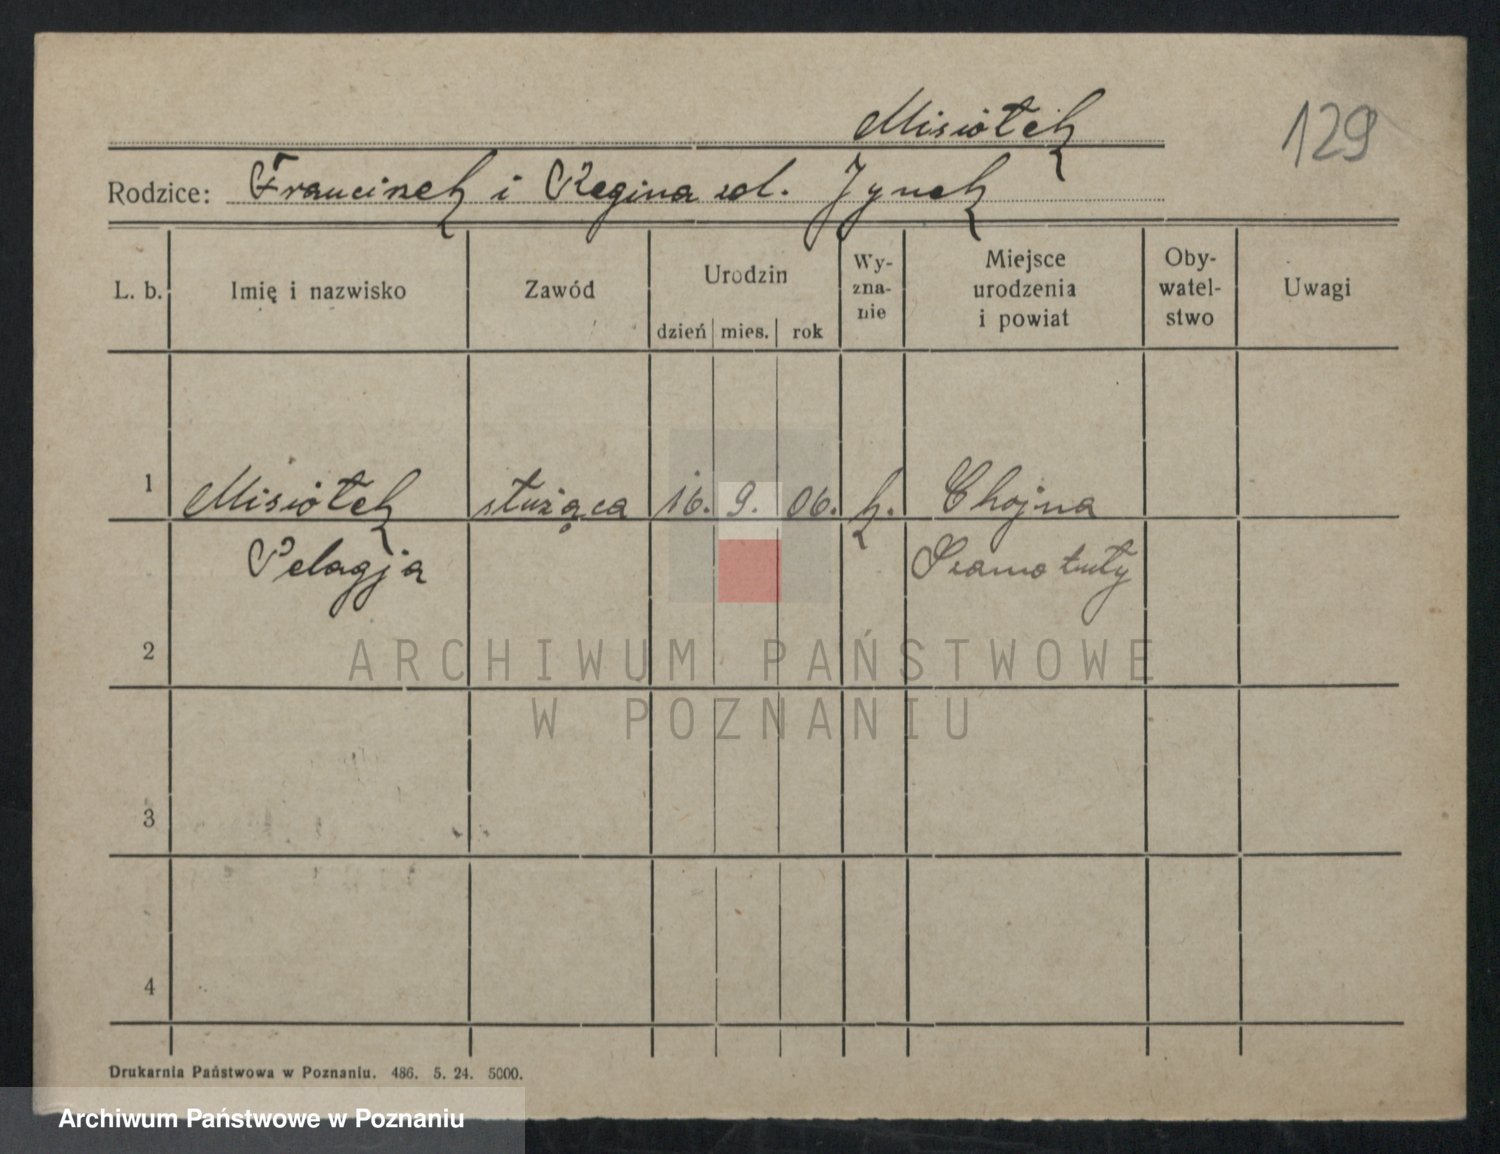 Misiołek
129
Rodzice: Franciszek i Regina zd. Jynek
L. b.
Imię i nazwisko
Zawód
Urodzin
dzień mies. rok
Wy-
zna-
nie
Miejsce
urodzenia
i powiat
Oby-
watel-
stwo
Uwagi
1 Misiołek służąca 16. 9. 06. k. Chojna
Pelagja Szamotuły
2
ARCHIWUM PAŃSTWOWE
W POZNANIU
3
4
Drukarnia Państwowa w Poznaniu. 486. 5. 24. 5000.
Archiwum Państwowe w Poznaniu